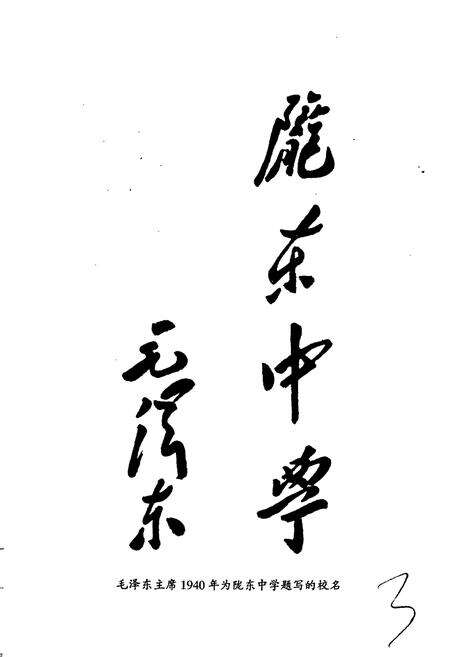 隴东中學
毛泽东
毛泽东主席1940年为陇东中学题写的校名
3